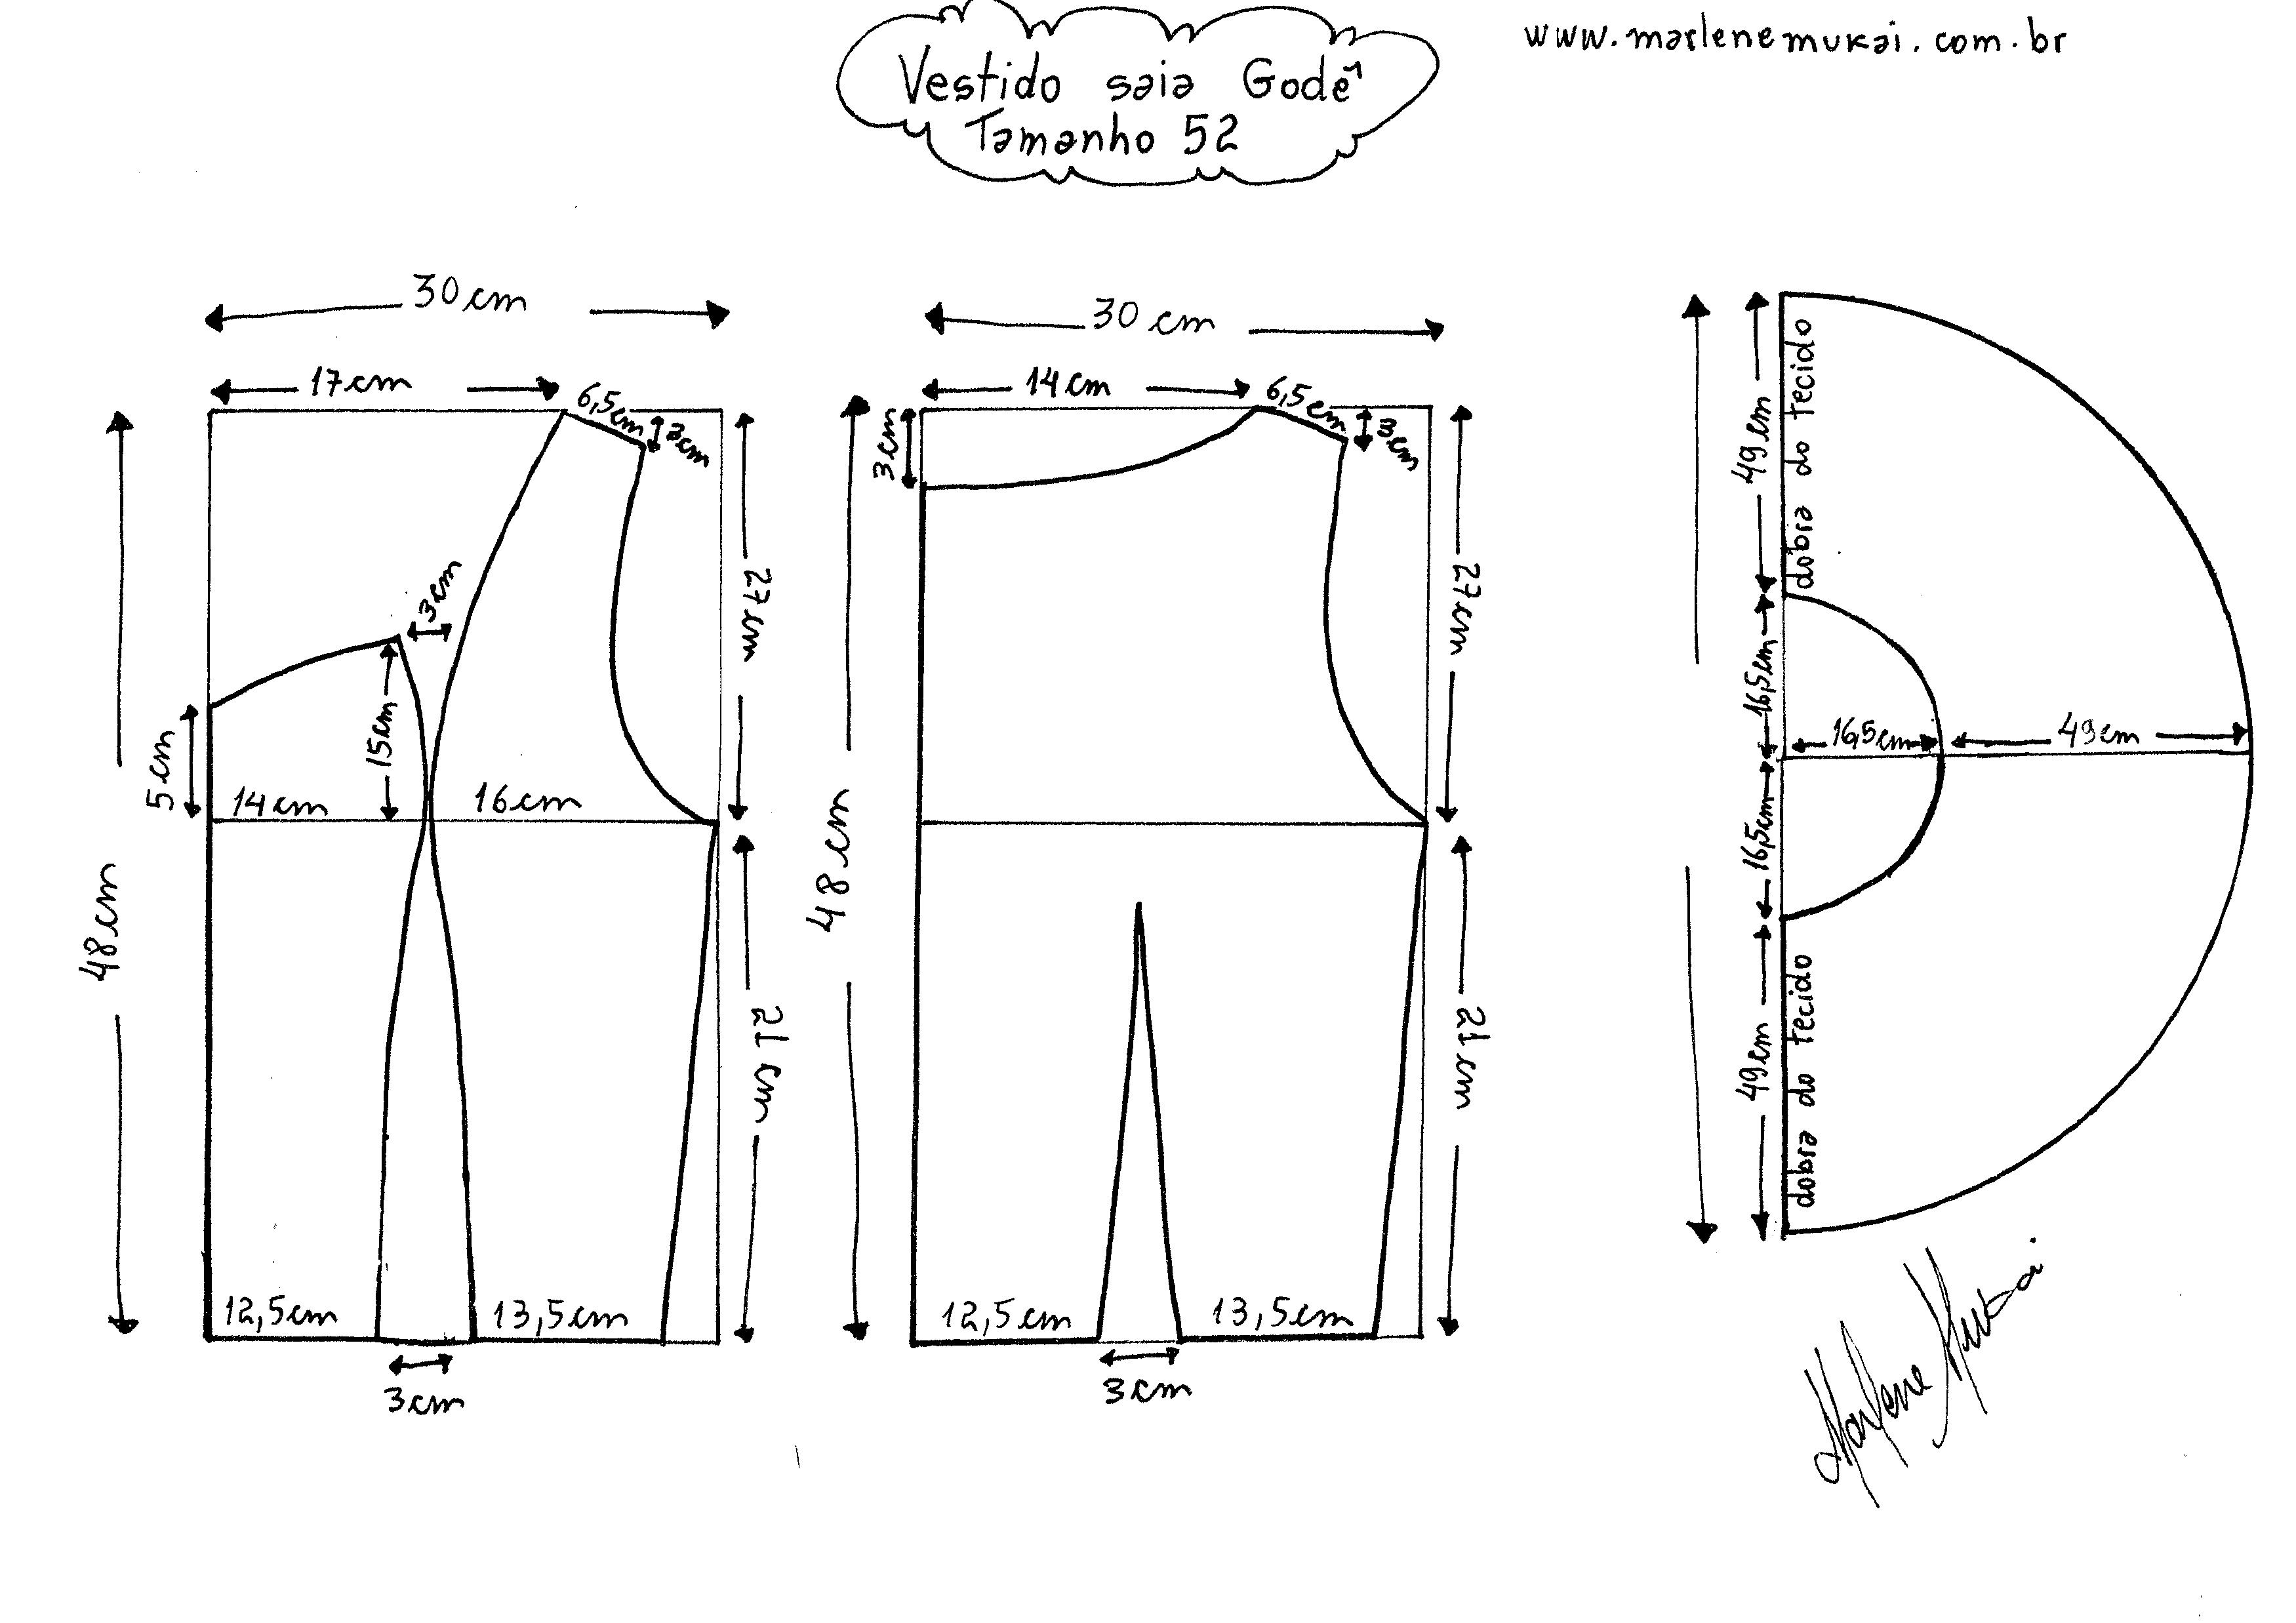 Vestido saia Godê
Tamanho 52
www.marlenemukai.com.br
30 cm
17 cm
6,5 cm
3 cm
48 cm
3 cm
27 cm
15 cm
5 cm
14 cm
16 cm
21 cm
12,5 cm
13,5 cm
3 cm
30 cm
14 cm
6,5 cm
3 cm
3 cm
48 cm
27 cm
21 cm
12,5 cm
13,5 cm
3 cm
49 cm
dobra do tecido
16,5 cm
16,5 cm
49 cm
16,5 cm
49 cm
dobra do tecido
Marlene Mukai